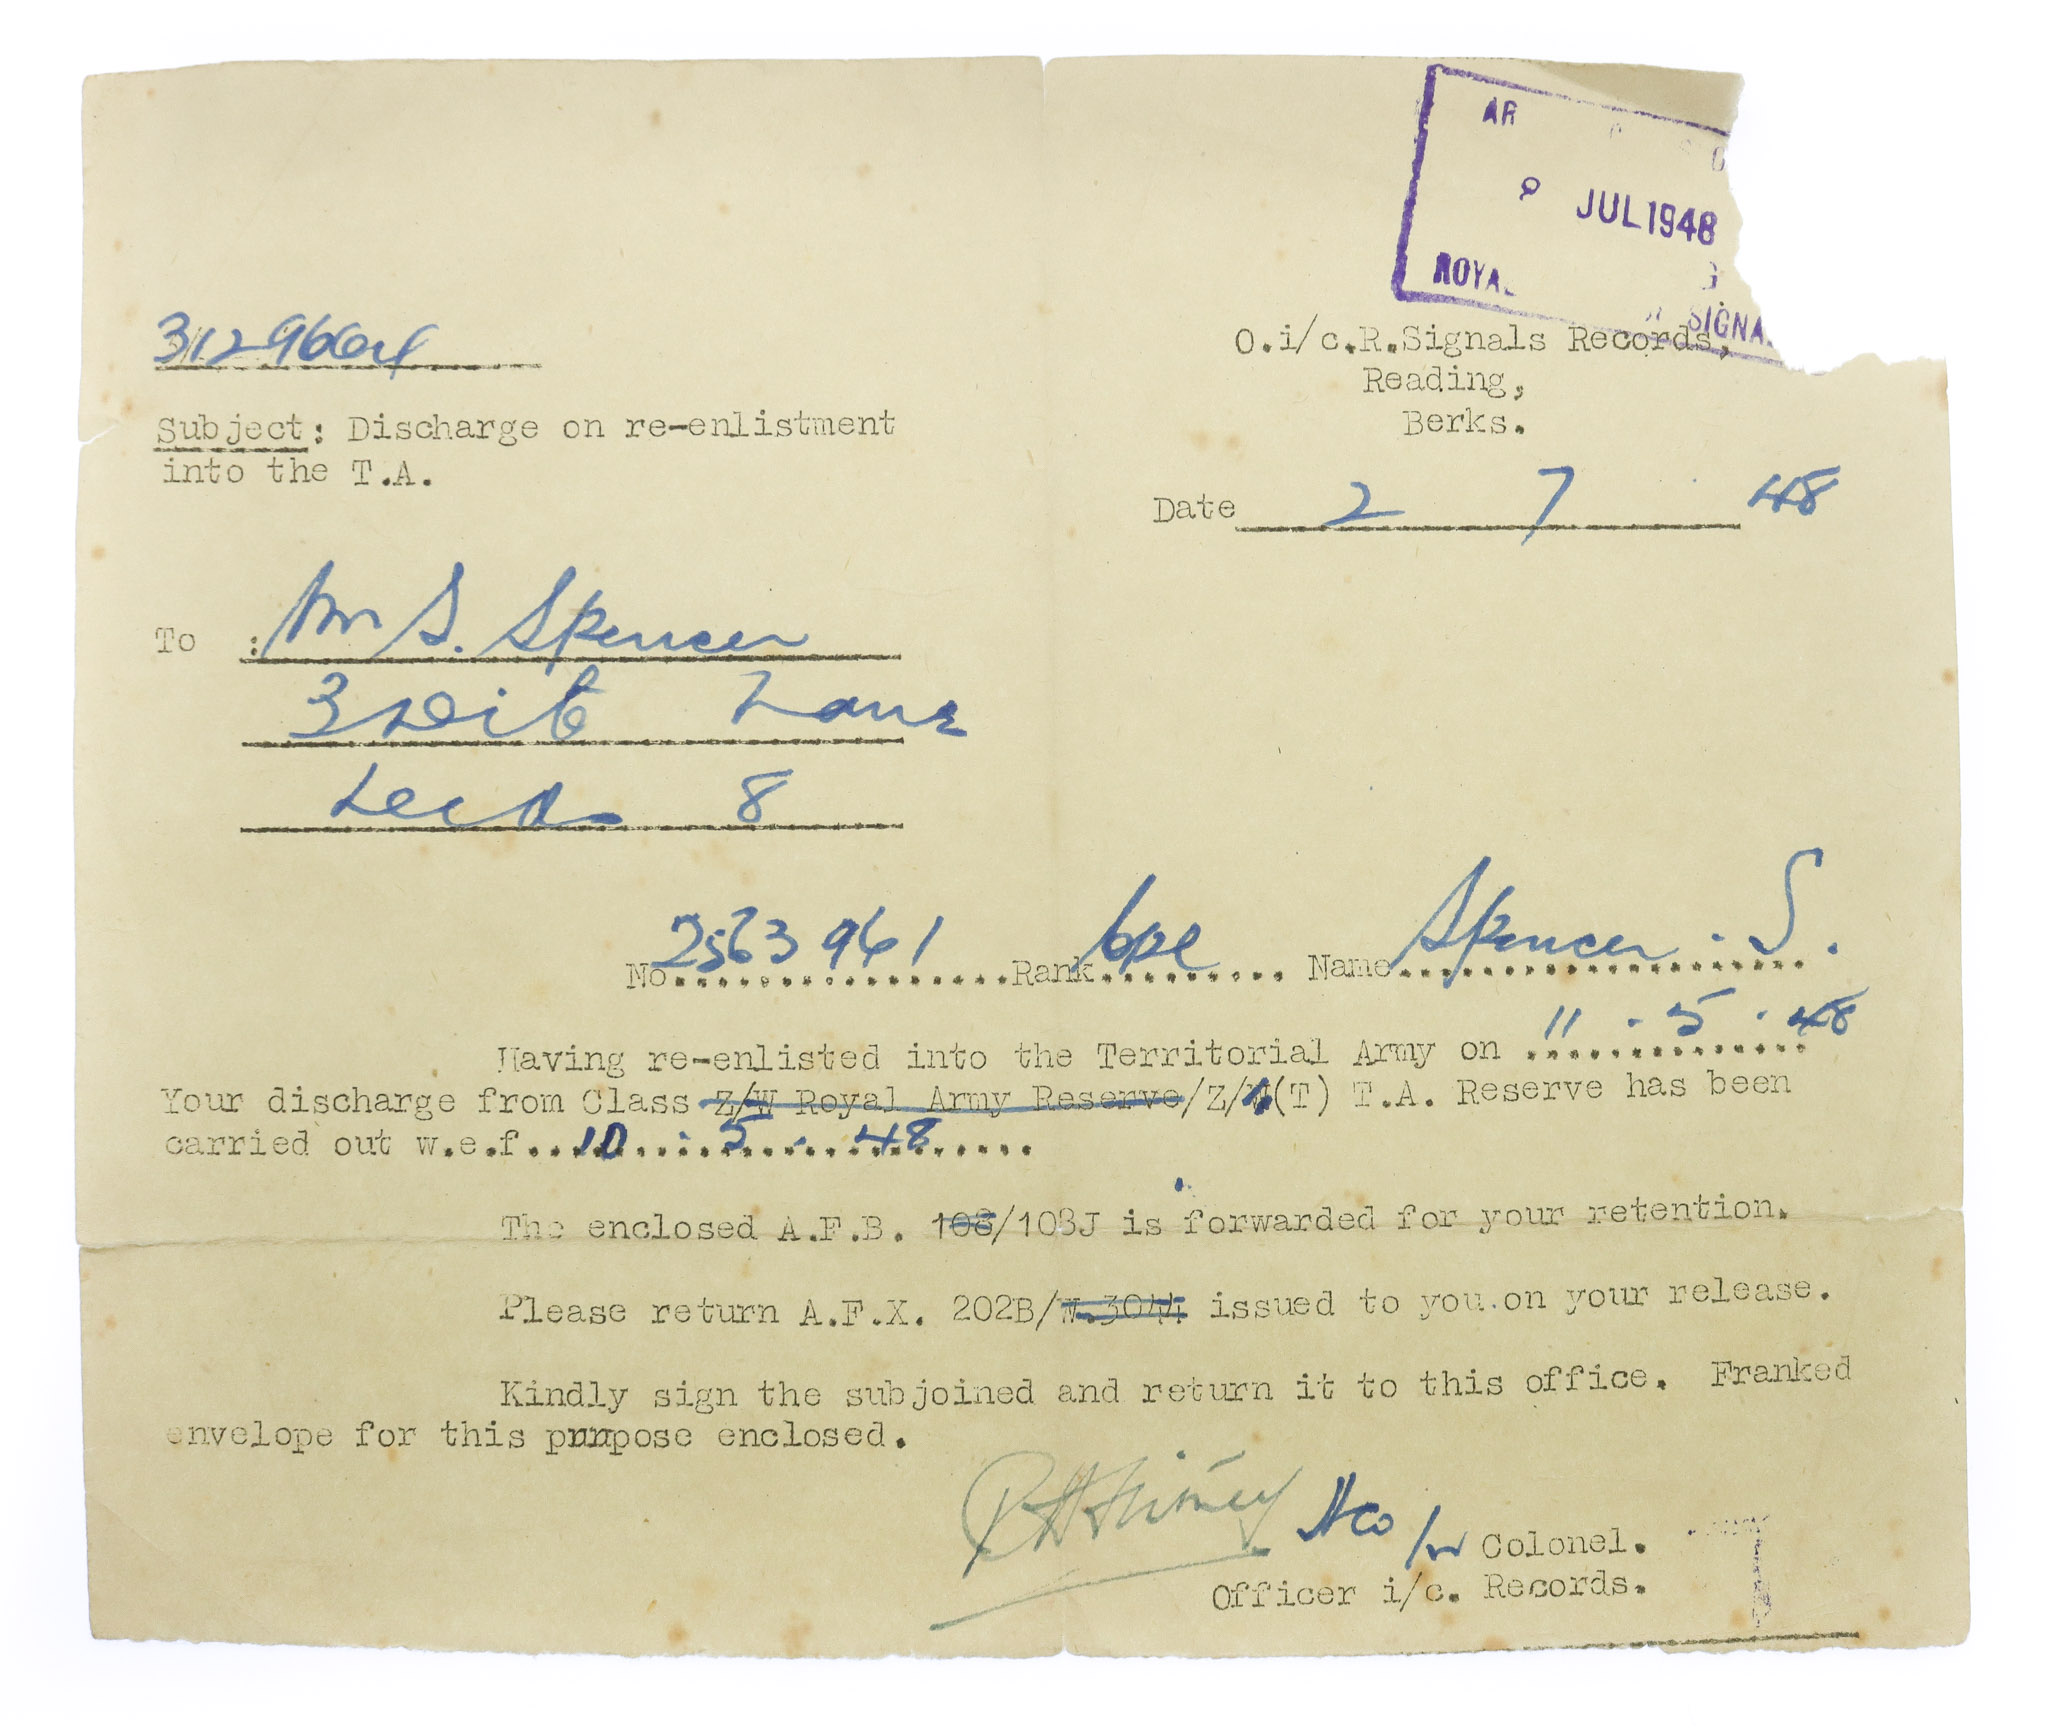 AR
JUL 1948
ROYAL
SIGNA
312966
O.i/c.R.Signals Records,
Reading,
Berks.
Subject: Discharge on re-enlistment
into the T.A.
Date 2 7 48
To : Mr S. Spencer
3 Lane
Leeds 8
No 2563961 Rank Cpl Name Spencer. S.
Having re-enlisted into the Territorial Army on 11.5.48
Your discharge from Class Z/W Royal Army Reserve/Z/W(T) T.A. Reserve has been
carried out w.e.f. 10.5.48
The enclosed A.F.B. 108/108J is forwarded for your retention.
Please return A.F.X. 202B/W.3044 issued to you.on your release.
Kindly sign the subjoined and return it to this office. Franked
envelope for this purpose enclosed.
Colonel.
Officer i/c. Records.